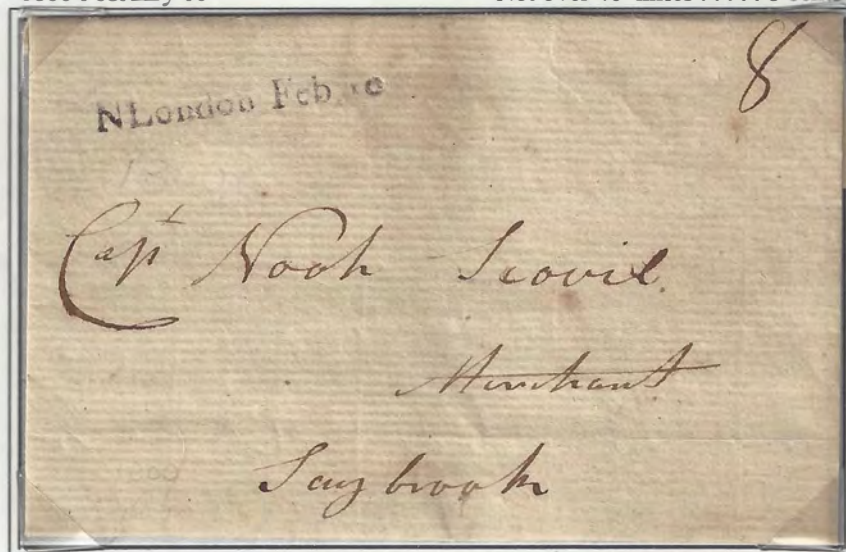 8
NLondon Feb.
Capt Noah Scovil.
Merchant
Saybrook